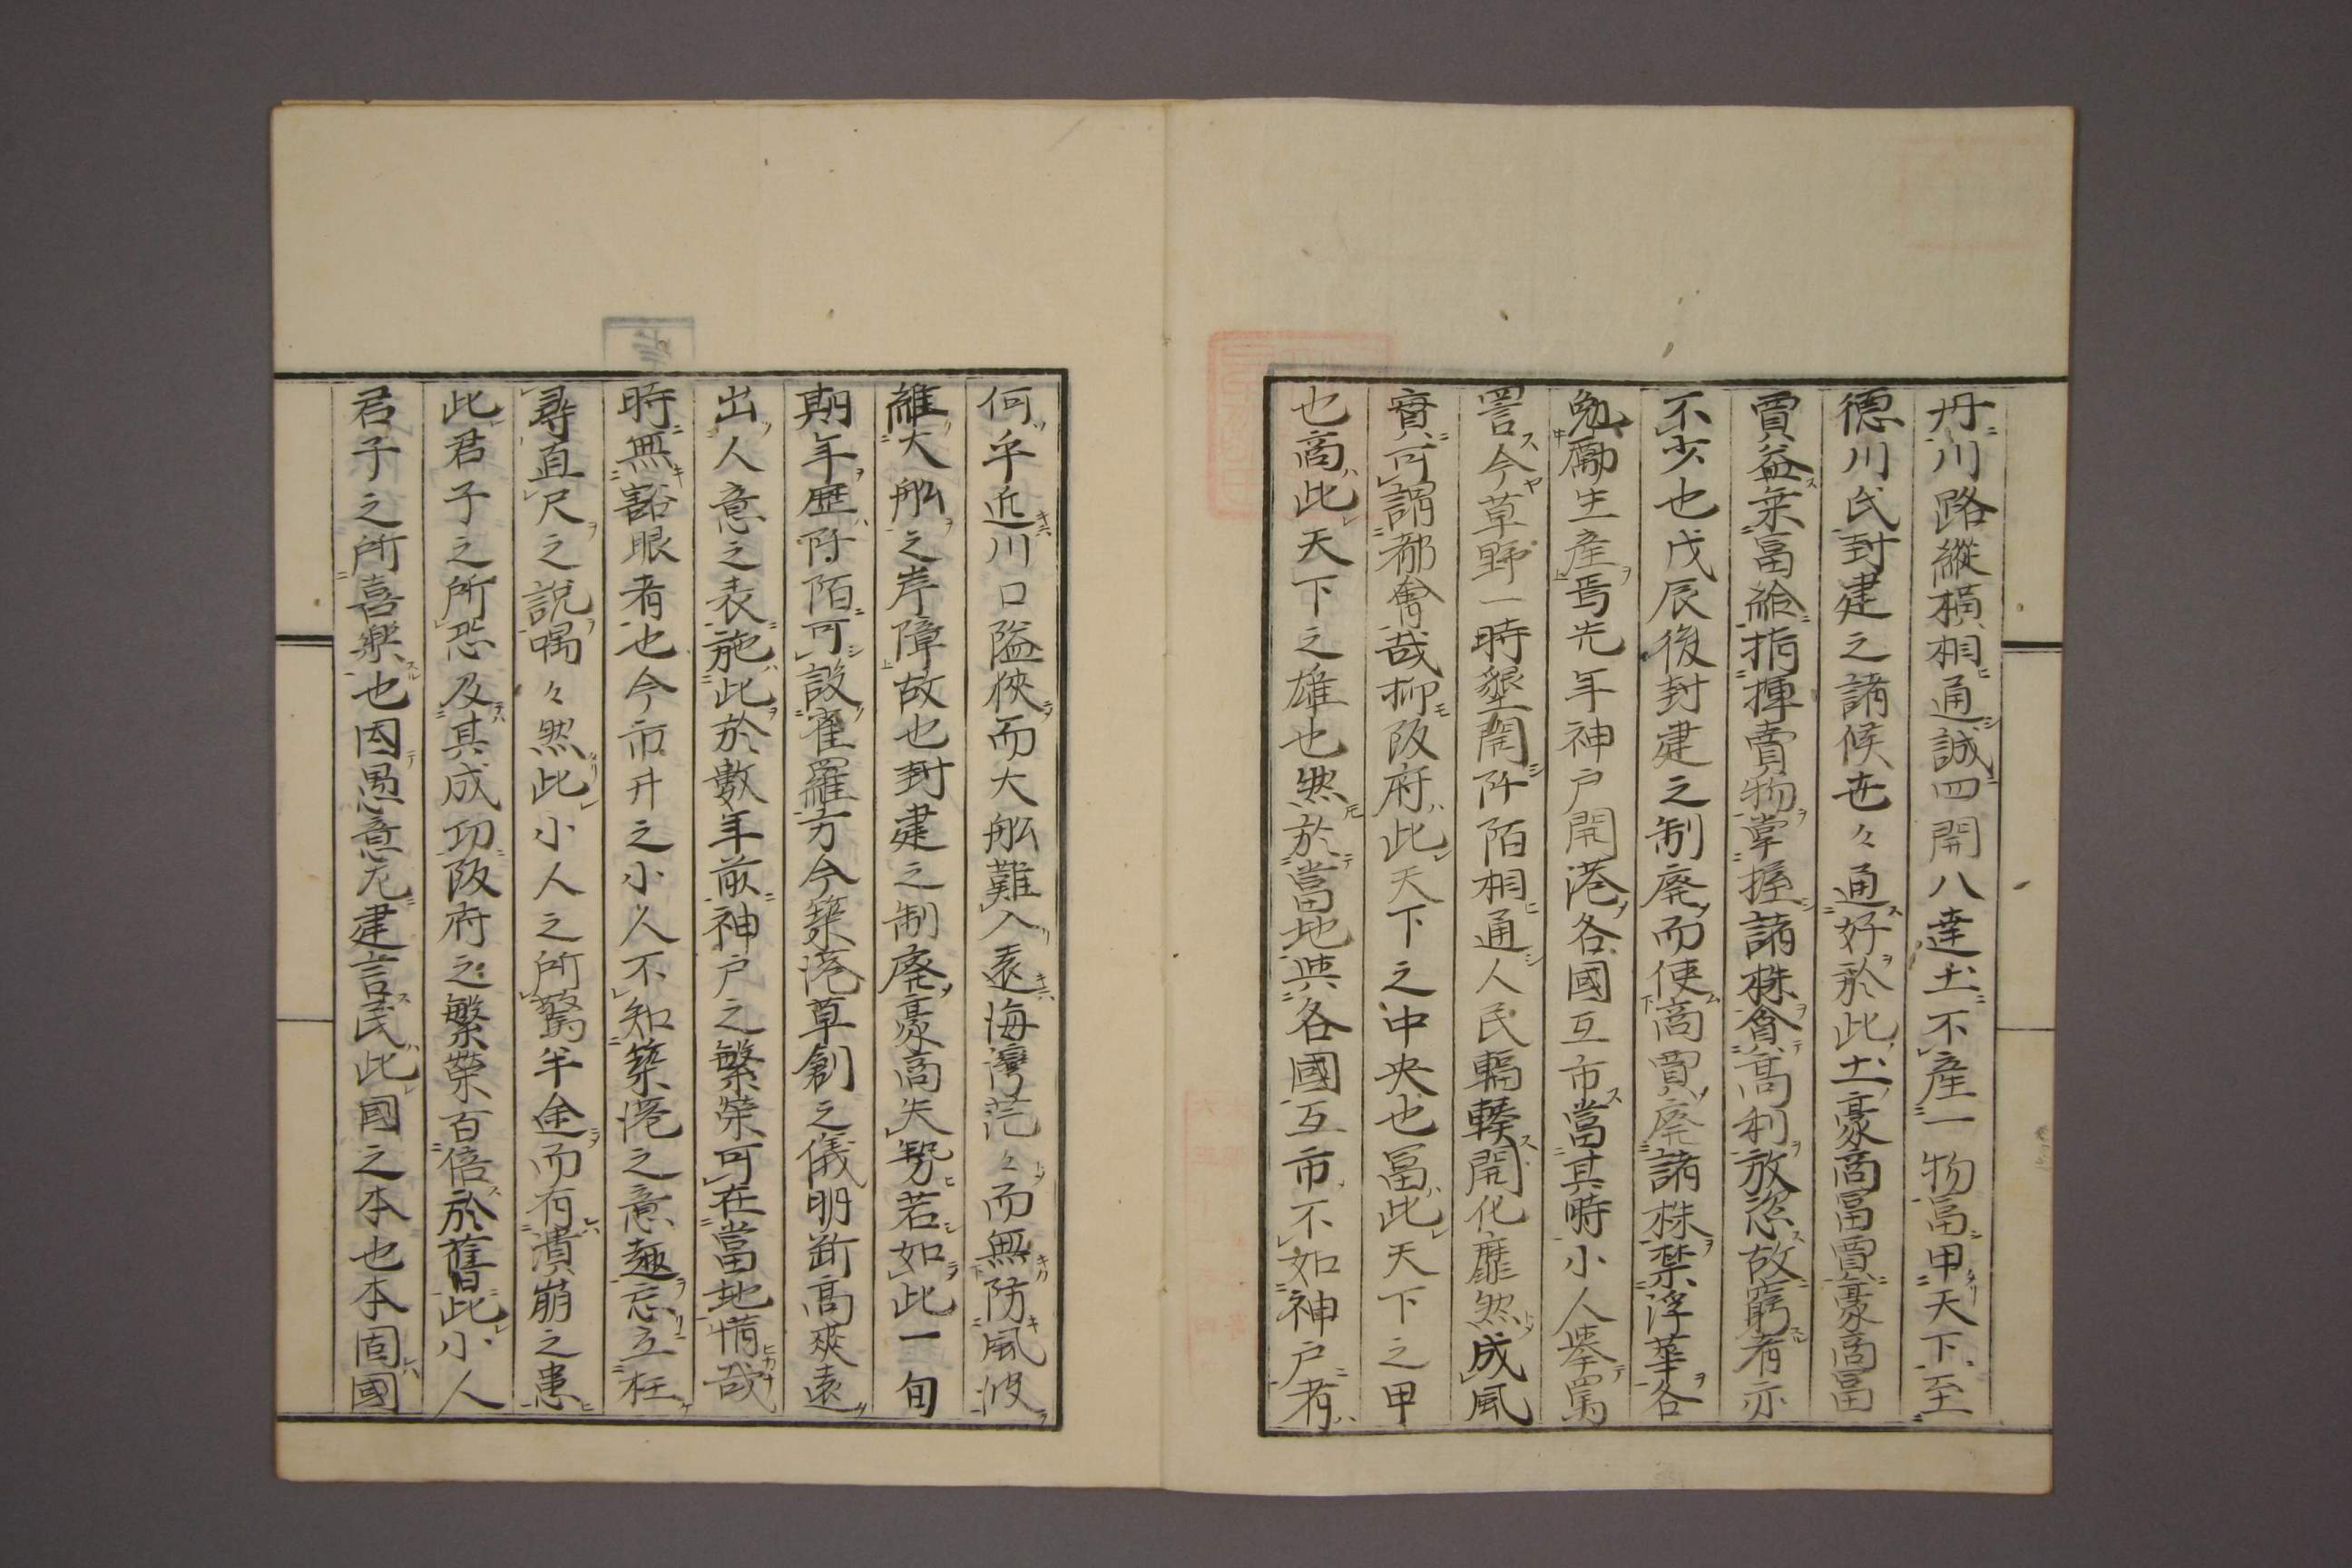 丹川路縱横相通誠四開八達土不産一物冨甲天下至
德川氏封建之諸候世々通好於此土豪商冨賈豪商冨
賈益葉冨給指揮賣物掌握諸株貪髙利放恣故窮者亦
不少也戊辰後封建之制廃而使商賈廃諸株禁浮華各
勉勵生産焉先年神戸開港各國互市當其時小人挙罵
詈今草野一時墾開阡陌相通人民輻輳開化靡然成風
實可謂都會哉抑阪府此天下之中央也冨此天下之甲
也商此天下之雄也然於當地與各國互市不如神戸者
何乎近川口隘狹而大舩難入遠海灣茫々而無防風波
維大舩之岸障故也封建之制廃豪商失勢若如此一旬
期年歴阡陌可設雀羅方今築港草創之儀明斷髙爽遠
出人意之表施此於數年前神戸之繁榮可在當地惜哉
時無豁眼者也今市井之小人不知築港之意趣忘立枉
尋直尺之說喁々然此小人之所驚半途而有潰崩之患
此君子之所恐及其成功阪府之繁榮百倍於舊此小人
君子之所喜樂也因愚意尢建言民此國之本也本固國